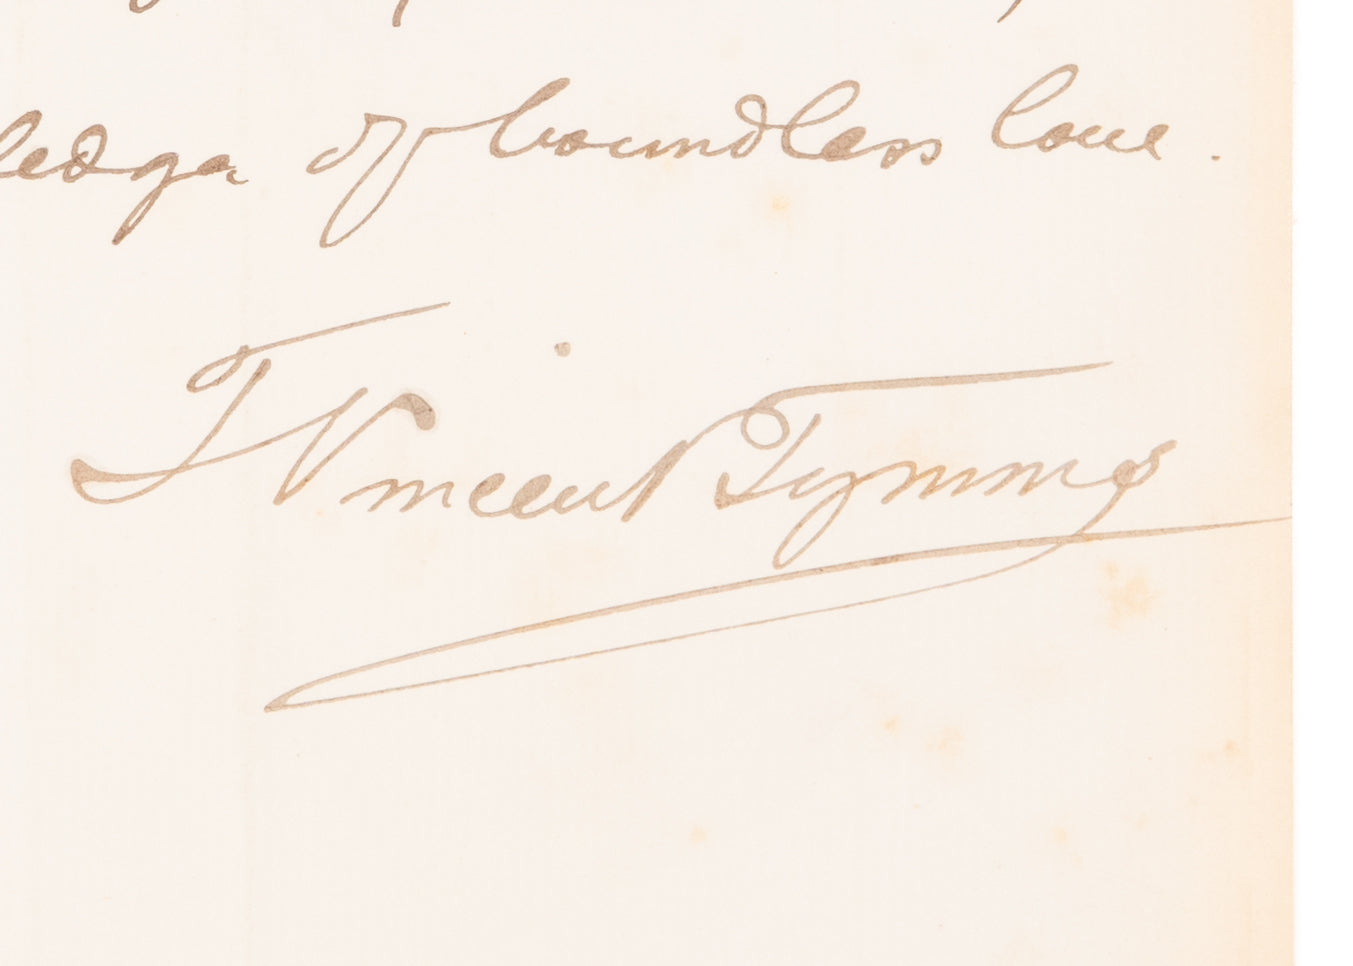 ledge of boundless love.
T Vincent Tymms